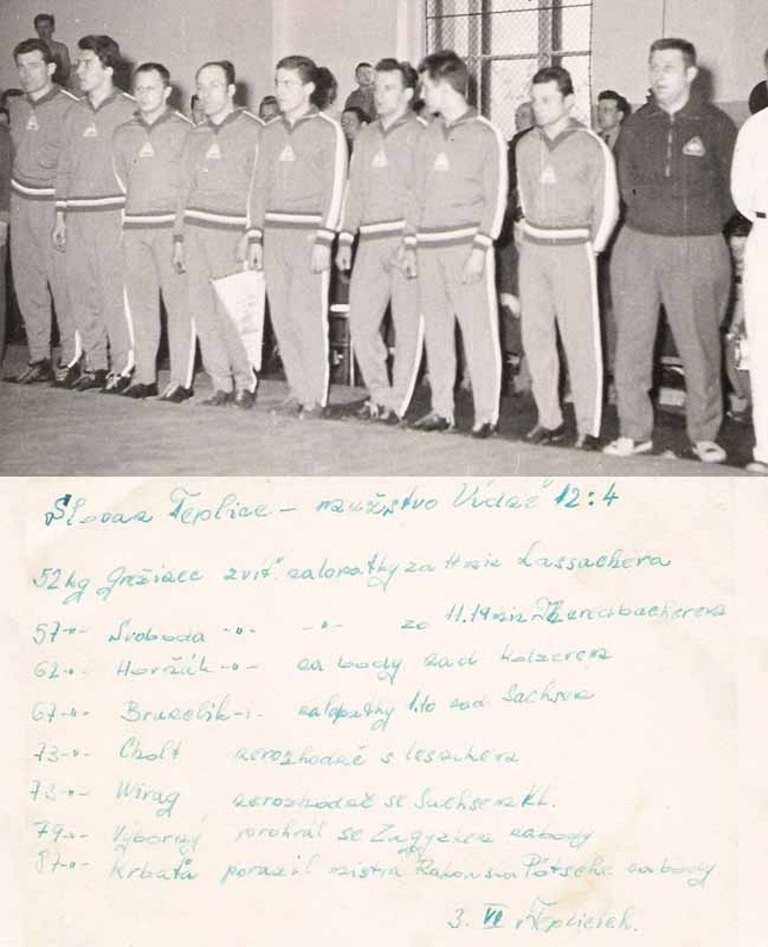 Slovan Teplice – mužstvo Vídně 12:4
52 kg zvít. na lopatky za Lassachera
57 -"- Svoboda -"- -"- za 11.14 min
62 -"- Horžák -"- na body nad Holzerem
67 -"- -"- na lopatky 1.10 nad Sachsen
73 -"- Cholt nerozhodně s
73 -"- Wirag nerozhodně se Sachsen Kl.
79 -"- Výborný prohrál se na body
87 -"- Krbaťa porazil mistra Rakouska Pötsche na body
3. VI v Teplicích.